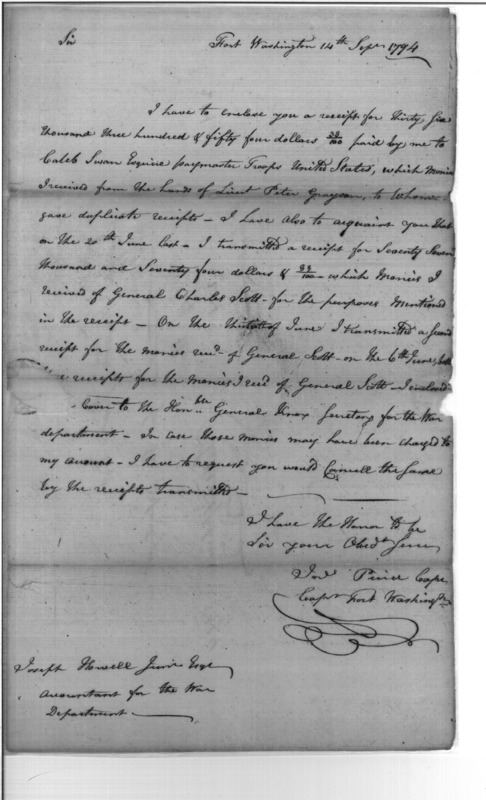 Sir Fort Washington 14th Sepr 1794
I have to enclose you a receipt for thirty, five
thousand three hundred & fifty four dollars paid by me to
Caleb Swan Esquire paymaster Troops United States, which Monies
I received from the hands of Lieut Peter Grayson, to whom
gave duplicate receipts - I have also to acquaint you that
on the 20th June last - I transmitted a receipt for Seventy Seven
thousand and Seventy four dollars & which Monies I
received of General Charles Scott - for the purposes Mentioned
in the receipt - On the of June I transmitted a Second
receipt for the monies recd - of General Scott - on the 6th June,
receipts for the Monies I recd of General Scott - I enclosed
Cover to the Honble General Knox Secretary for the War
department - In case those monies may have been charged to
my account - I have to request you would the Same
by the receipts transmitted -
I have the Honor to be
Sir your Obedt Serv
Jno Peirce Capt
Capt Fort Washington
Joseph Howell Junr Esqr
accountant for the War
Department -